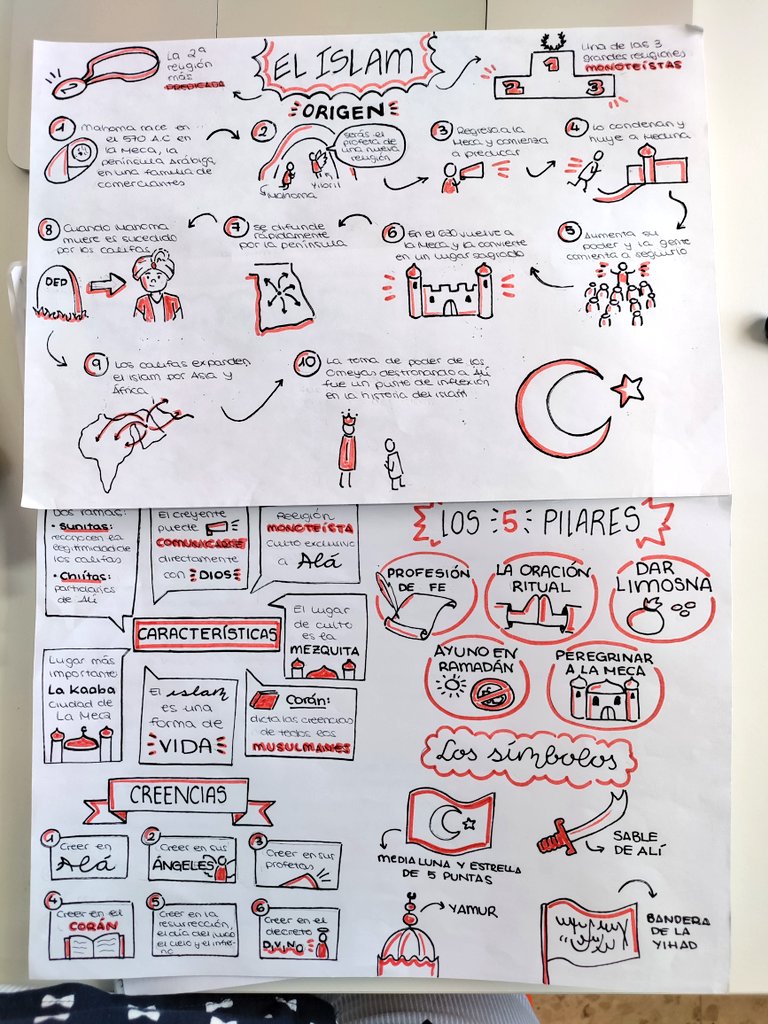 La 2ª
religión
más
PREDICADA
EL ISLAM
1
2
3
Una de las 3
grandes religiones
MONOTEÍSTAS
ORIGEN
1
Mahoma nace en
el 570 A.C en
la Meca, la
península Arábiga,
en una familia de
comerciantes
2
serás el
profeta de
una nueva
religión
Mahoma
3
Regresa a la
Meca y comienza
a predicar
4
Lo condenan y
huye a Medina
8
Cuando Mahoma
muere es sucedido
por los califas
DEP
7
Se difunde
rápidamente
por la península
6
En el 630 vuelve a
la Meca y la convierte
en un lugar sagrado
5
Aumenta su
poder y la gente
comienza a seguirlo
9
Los califas expanden
el islam por Asia y
África
10
La toma de poder de los
Omeyas destronando a Alí
fue un punto de inflexión
en la historia del islam
Dos ramas:
• Sunitas:
reconocen la
legitimidad de
los califas
• Chiítas:
partidarios
de Alí
El creyente
puede
COMUNICARSE
directamente
con DIOS
Religión
MONOTEÍSTA
culto exclusivo
a Alá
CARACTERÍSTICAS
El lugar
de culto
es la
MEZQUITA
Lugar más
importante
La Kaaba
ciudad de
La Meca
El islam
es una
forma de
VIDA
Corán:
dicta las creencias
de todos los
MUSULMANES
LOS 5 PILARES
PROFESIÓN
DE FE
LA ORACIÓN
RITUAL
DAR
LIMOSNA
AYUNO EN
RAMADÁN
PEREGRINAR
A LA MECA
CREENCIAS
1
Creer en
Alá
2
Creer en sus
ÁNGELES
3
Creer en sus
profetas
4
Creer en el
CORÁN
5
Creer en la
resurrección,
el día del juicio
el cielo y el infier-
no
6
Creer en el
decreto
DIVINO
Los símbolos
MEDIALUNA Y ESTRELLA
DE 5 PUNTAS
SABLE
DE ALÍ
YAMUR
BANDERA
DE LA
YIHAD